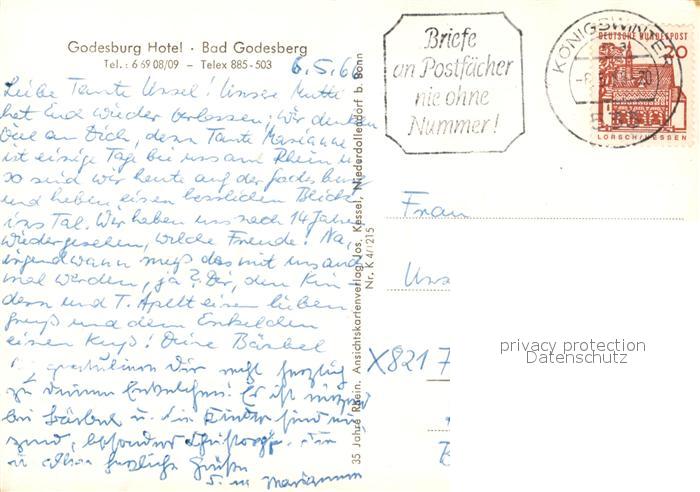 Godesburg Hotel · Bad Godesberg
Tel.: 6 69 08/09 – Telex 885-503
6.5.66
Liebe Tante Ursel! Unsere Mutti
hat Euch wieder verlassen; wir denken
viel an Dich, denn Tante Marianne
ist einige Tage bei uns am Rhein u.
so sind wir heute auf der Godesburg
und haben einen herrlichen Blick
ins Tal. Wir haben uns nach 14 Jahren
wiedergesehen, welche Freude! Na,
irgendwann muß das mit uns auch
mal werden, ja? Dir, den Kin-
dern und T. Apelt einen lieben
Gruß und dem Enkelchen
einen Kuß! Deine Bärbel
gratuliere Dir recht herzlich
zu Deinem Enkelchen! Es ist
bei Bärbel u. die Kinder sind
besonders
u. allen herzliche Grüße
Marianne
35 Jahre Rhein. Ansichtskartenverlag Jos. Kessel, Niederdollendorf b. Bonn
Nr. K 4/1215
Briefe
an Postfächer
nie ohne
Nummer!
KÖNIGSWINTER
DEUTSCHE BUNDESPOST
20
LORSCH/HESSEN
Frau
X821
privacy protection
Datenschutz